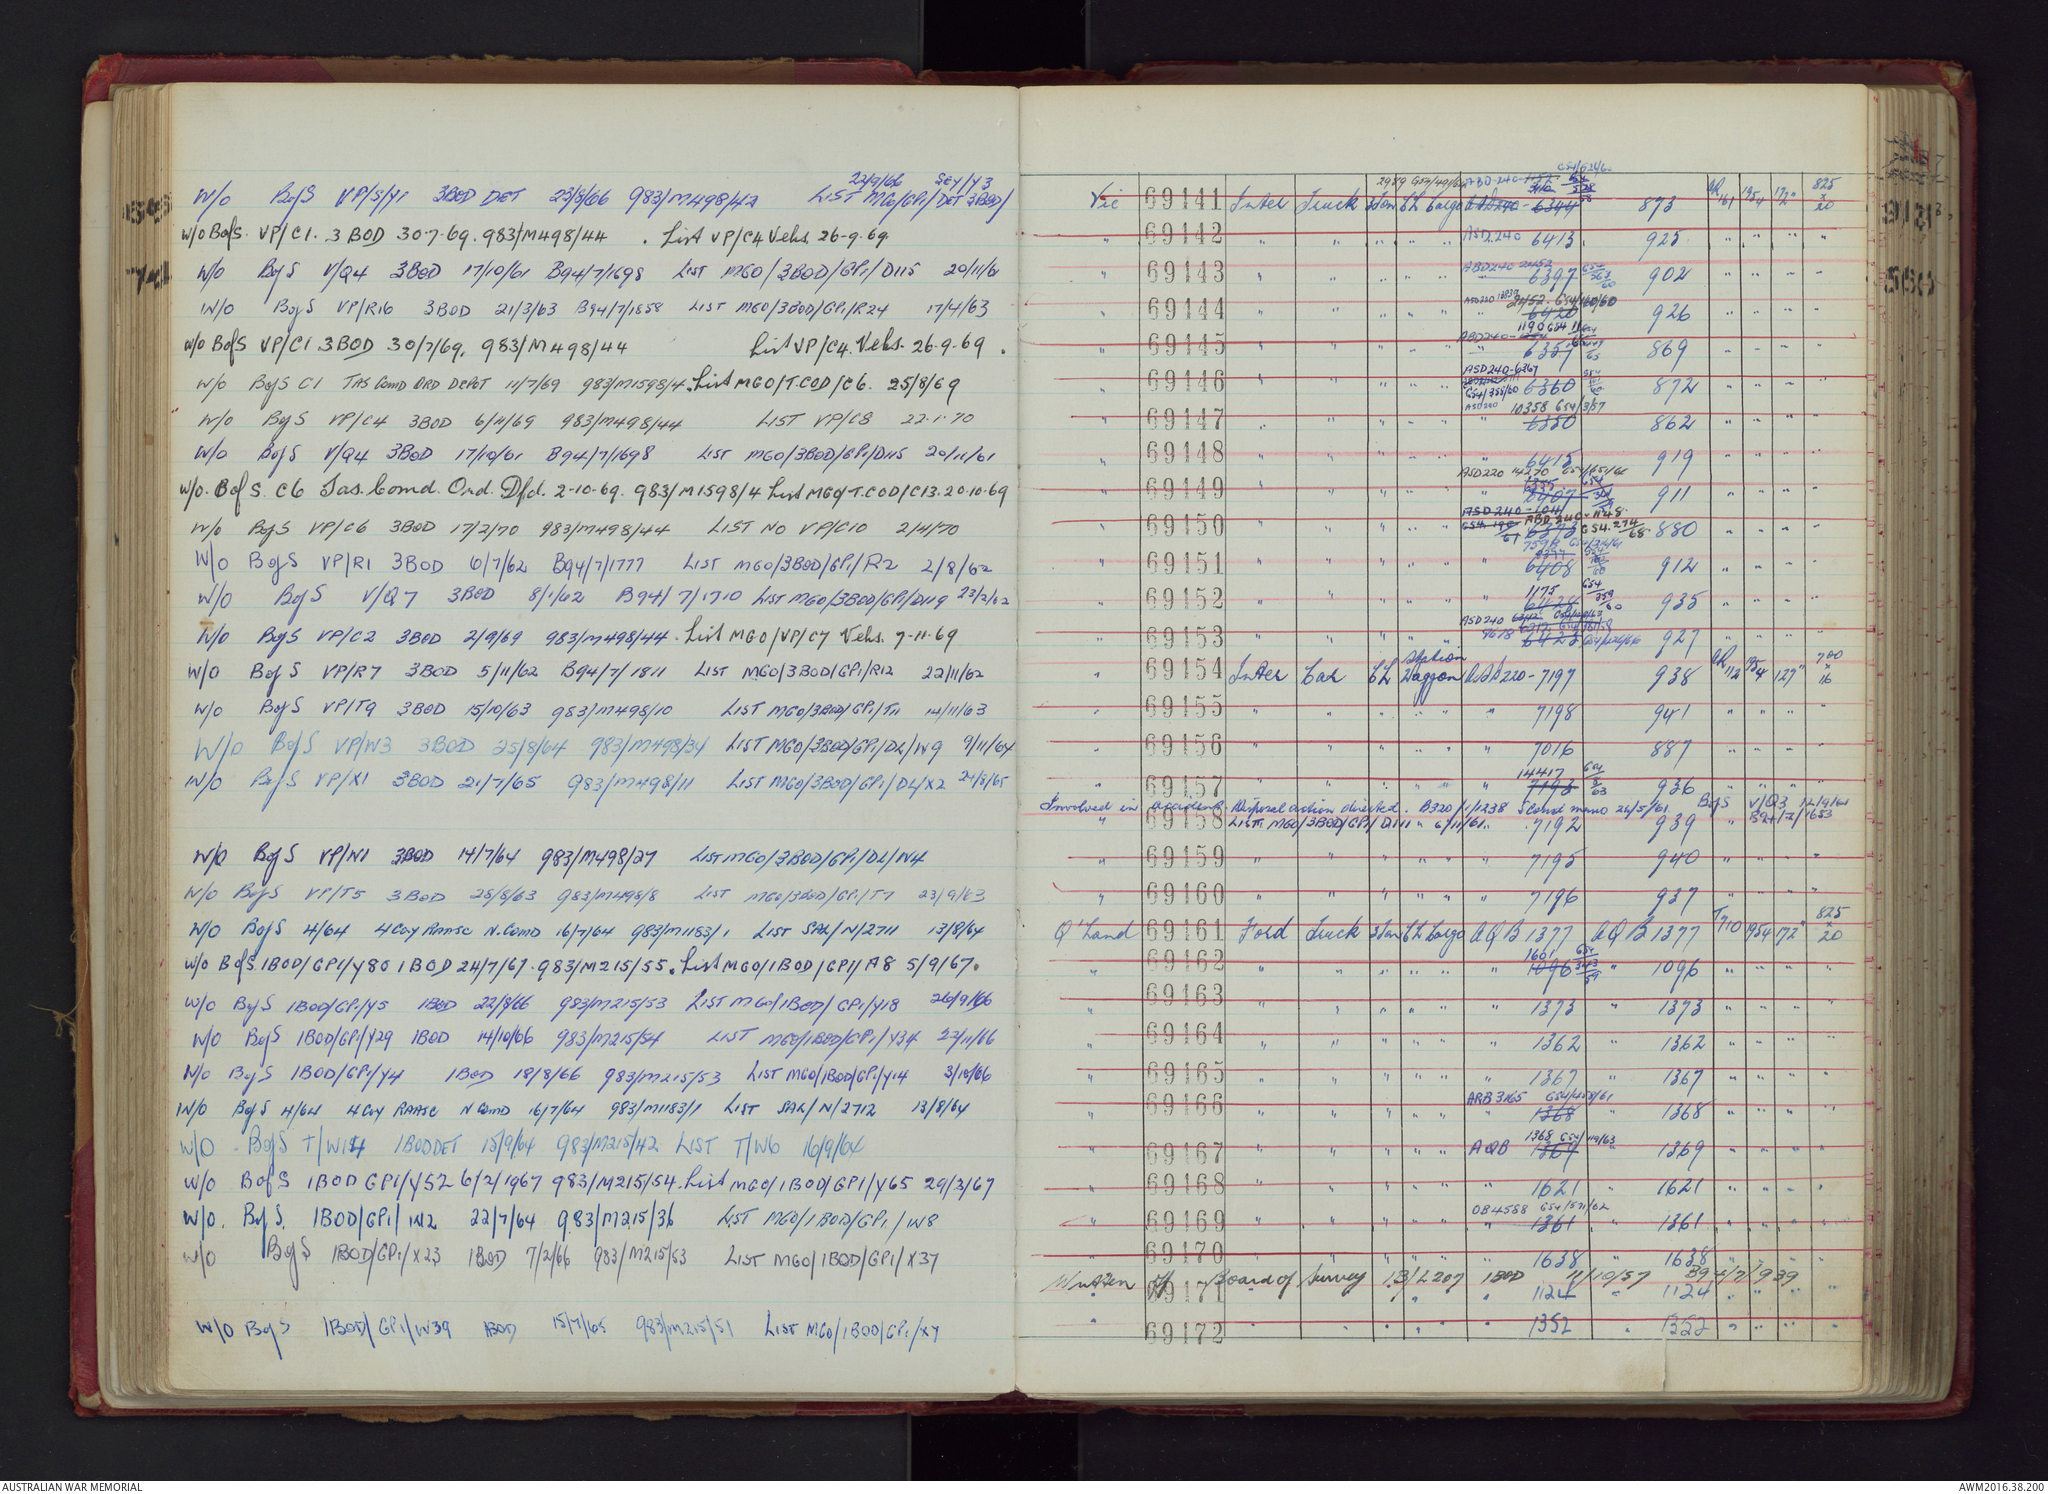 22/9/66 SEY/Y3
W/O BofS VP/S/Y1 3BOD DET 23/8/66 983/M498/42 LIST MGO/GP1/DET 3BOD/
W/O BofS. VP/C1. 3 BOD 30.7.69. 983/M498/44. List VP/C4 Vehs. 26.9.69
W/O BofS V/Q4 3BOD 17/10/61 B94/7/1698 LIST MGO/3BOD/GP1/D115 20/11/61
W/O BofS VP/R16 3BOD 21/3/63 B94/7/1858 LIST MGO/3BOD/GP1/R24 17/4/63
W/O BofS VP/C1 3BOD 30/7/69. 983/M498/44 List VP/C4. Vehs. 26.9.69.
W/O BofS C1 TAS COMD ORD DEPOT 11/7/69 983/M1598/4. List MGO/T.COD/C6. 25/8/69
W/O BofS VP/C4 3BOD 6/11/69 983/M498/44 LIST VP/C8 22.1.70
W/O BofS V/Q4 3BOD 17/10/61 B94/7/1698 LIST MGO/3BOD/GP1/D115 20/11/61
W/O. BofS. C6 Tas. Comd. Ord. Dfd. 2.10.69. 983/M1598/4 List MGO/T.COD/C13. 20.10.69
W/O BofS VP/C6 3BOD 17/2/70 983/M498/44 LIST NO VP/C10 2/4/70
W/O BofS VP/R1 3BOD 6/7/62 B94/7/1777 LIST MGO/3BOD/GP1/R2 2/8/62
W/O BofS V/Q7 3BOD 8/1/62 B94/7/1710 LIST MGO/3BOD/GP1/D119 23/2/62
W/O BofS VP/C2 3BOD 2/9/69 983/M498/44. List MGO/VP/C7 Vehs. 7.11.69
W/O BofS VP/R7 3BOD 5/11/62 B94/7/1811 LIST MGO/3BOD/GP1/R12 22/11/62
W/O BofS VP/T9 3BOD 15/10/63 983/M498/10 LIST MGO/3BOD/GP1/T11 14/11/63
W/O BofS VP/W3 3BOD 25/8/64 983/M498/34 LIST MGO/3BOD/GP1/DL/W9 9/11/64
W/O BofS VP/X1 3BOD 21/7/65 983/M498/11 LIST MGO/3BOD/GP1/DL/X2 24/8/65
W/O BofS VP/N1 3BOD 14/7/64 983/M498/27 LIST MGO/3BOD/GP1/DL/N4
W/O BofS VP/T5 3BOD 28/8/63 983/M498/8 LIST MGO/3BOD/GP1/T7 23/9/63
W/O BofS 4/64 4 Coy RAASC N.COMD 16/7/64 983/M1183/1 LIST SAL/N/2711 13/8/64
W/O BofS 1BOD/GP1/Y80 1BOD 24/7/67. 983/M215/55. List MGO/1BOD/GP1/A8 5/9/67.
W/O BofS 1BOD/GP1/Y5 1BOD 22/8/66 983/M215/53 LIST MGO/1BOD/GP1/Y18 26/9/66
W/O BofS 1BOD/GP1/Y29 1BOD 14/10/66 983/M215/54 LIST MGO/1BOD/GP1/Y34 23/11/66
W/O BofS 1BOD/GP1/Y4 1BOD 18/8/66 983/M215/53 LIST MGO/1BOD/GP1/Y14 3/10/66
W/O BofS 4/64 4 Coy RAASC N COMD 16/7/64 983/M1183/1 LIST SAL/N/2712 13/8/64
W/O BofS T/W14 1BOD DET 15/9/64 983/M215/42 LIST T/W6 16/9/64
W/O BofS 1BOD GP1/Y52 6/2/1967 983/M215/54. List MGO/1BOD/GP1/Y65 29/3/67
W/O. BofS. 1BOD/GP1/W2 22/7/64 983/M215/36 LIST MGO/1BOD/GP1/W8
W/O BofS 1BOD/GP1/X23 1BOD 7/2/66 983/M215/53 LIST MGO/1BOD/GP1/X37
W/O BofS 1BOD/GP1/W39 1BOD 15/7/65 983/M215/51 LIST MGO/1BOD/GP1/X7
Vic 69141 Inter Truck 3 Ton GS Cargo ASD240-6344 873 1954 172" 825 x 20
" 69142 " " " " " ASD 240 6413 925 " " " "
" 69143 " " " " ABD240 2452 6397 902 " " " "
" 69144 " " " " " 6420 926 " " " "
" 69145 " " " " 6357 869 " " " "
" 69146 " " " " " ASD240-6367 6360 872 " " " "
" 69147 " " " " " 10358 6350 862 " " " "
" 69148 " " " " " 6415 919 " " " "
" 69149 " " " " " ASD220 14270 6407 911 " " " "
" 69150 " " " " " ABD 240-1148 6373 880 " " " "
" 69151 " " " " " 7598 6408 912 " " " "
" 69152 " " " " " 1175 6428 935 " " " "
" 69153 " " " " " ASD240 9678 6423 927 " " " "
" 69154 Inter Car GS Station Waggon ASD220-7197 938 1954 127" 700 x 16
" 69155 " " " " " " 7198 941 " " " "
" 69156 " " " " " " 7016 887 " " " "
" 69157 " " " " " 14417 7193 936 " " "
Involved in accident. Disposal action directed. B320/1/1238 Scond memo 26/5/61. BofS V/Q3 12/9/61 B94/7/1653
" 69158 LIST. MGO/3BOD/GP1/D111 6/11/61. 7192 939 "
" 69159 " " " " " " 7195 940 " " " "
" 69160 " " " " " " 7196 937 " " " "
Q'land 69161 Ford Truck 3 Ton GS Cargo AQB 1377 AQB 1377 1954 172" 825 x 20
" 69162 " " " " " " 1601 1096 " 1096 " " " "
" 69163 " " " " " " 1373 " 1373 " " " "
" 69164 " " " " " " 1362 " 1362 " " " "
" 69165 " " " " " " 1367 " 1367 " " " "
" 69166 " " " " " ARB 3165 1368 " 1368 " " " "
" 69167 " " " " " AQB 1368 1369 " 1369 " " " "
" 69168 " " " " " " 1621 " 1621 " " " "
" 69169 " " " " " 1361 " 1361 " " " "
" 69170 " " " " " " 1638 " 1638 " " " "
Written off Board of Survey 13/L207 1BOD 11/10/57 B94/7/939
" 69171 " " 1124 " 1124 " " " "
" 69172 " " " " " " 1352 " 1352 " " " "
AUSTRALIAN WAR MEMORIAL
AWM2016.38.200